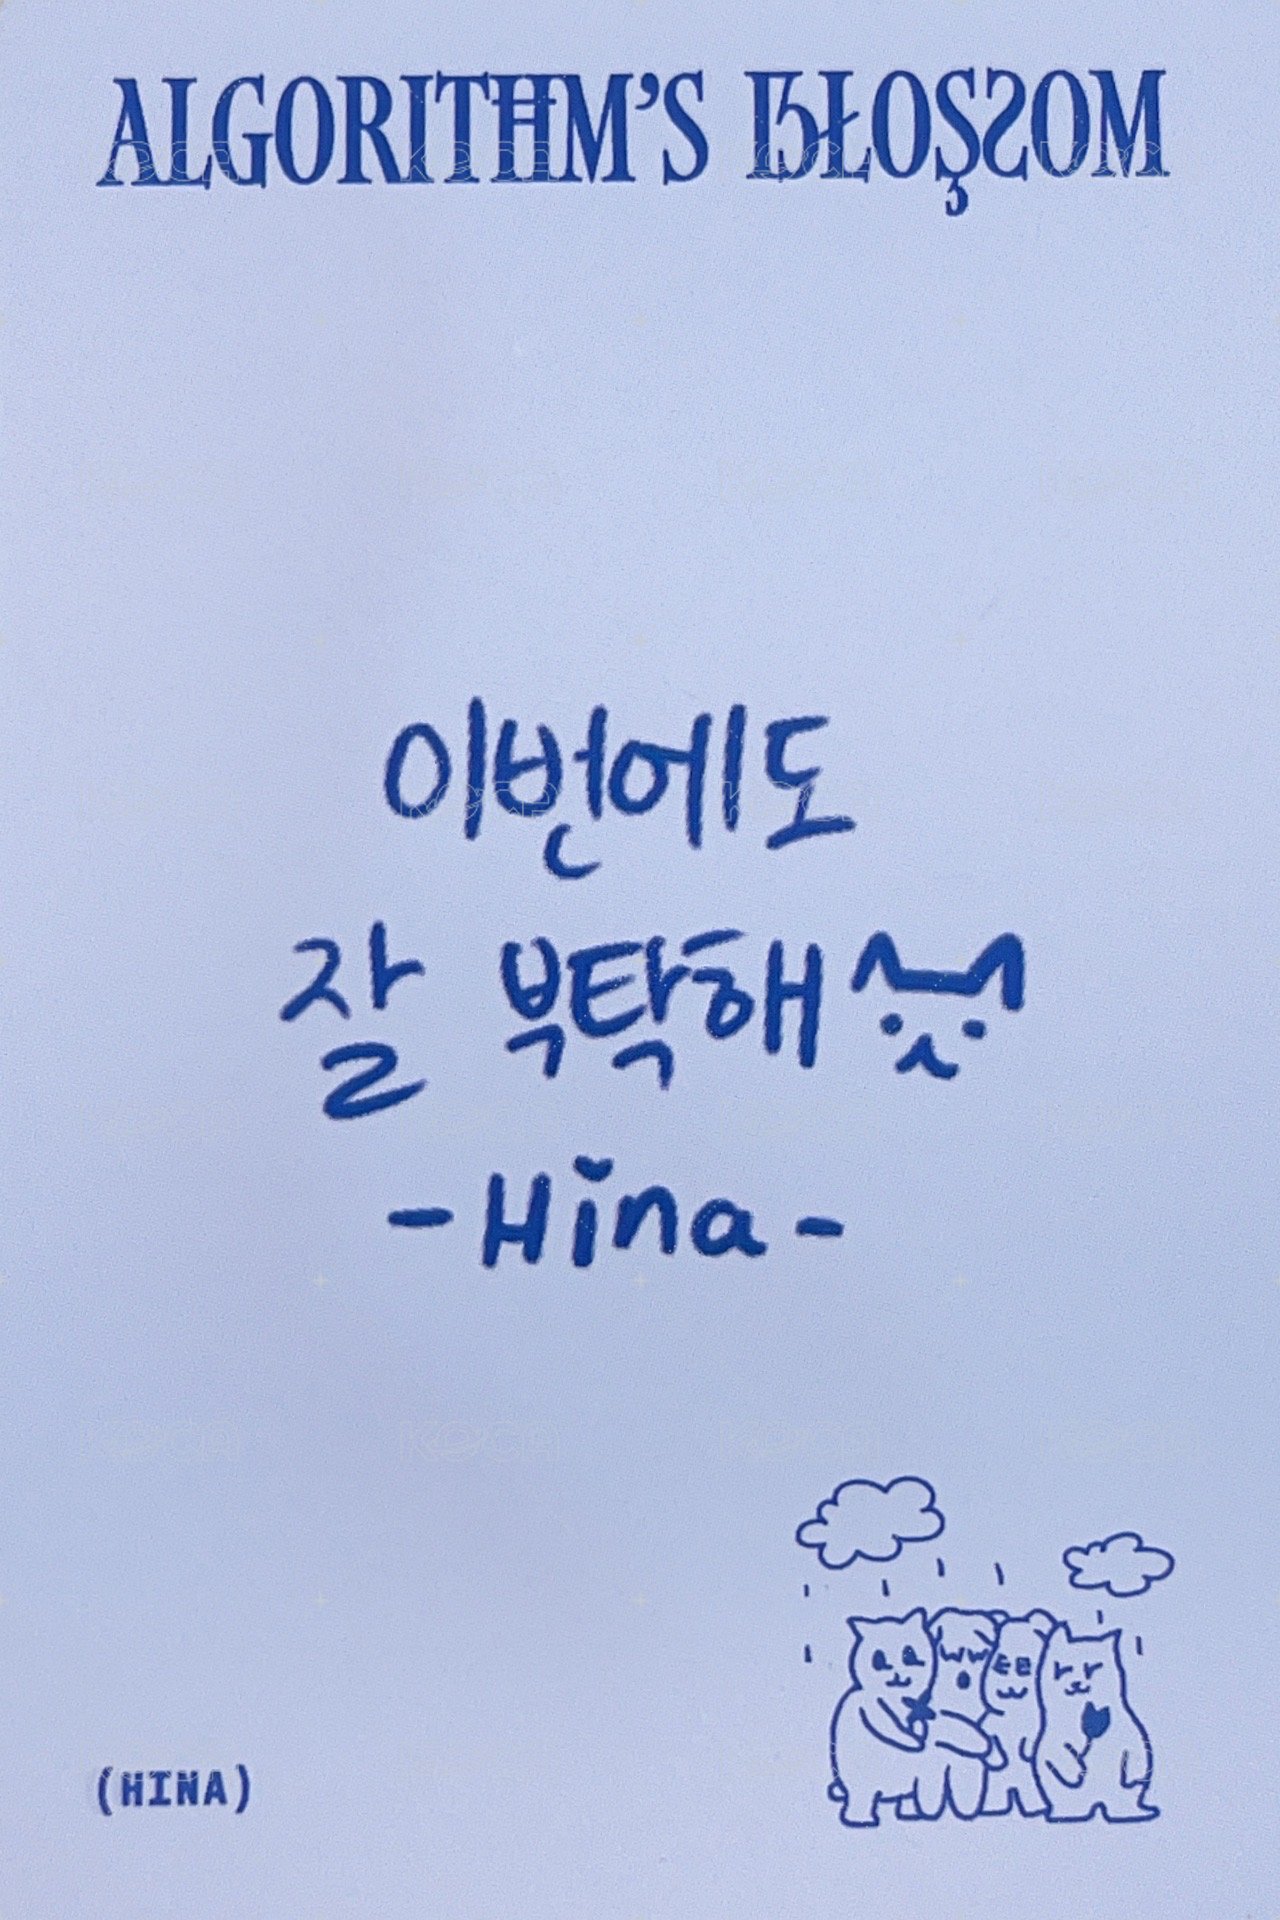 ALGORITHM'S BLOSSOM
이번에도
잘 부탁해
-Hina-
(HINA)